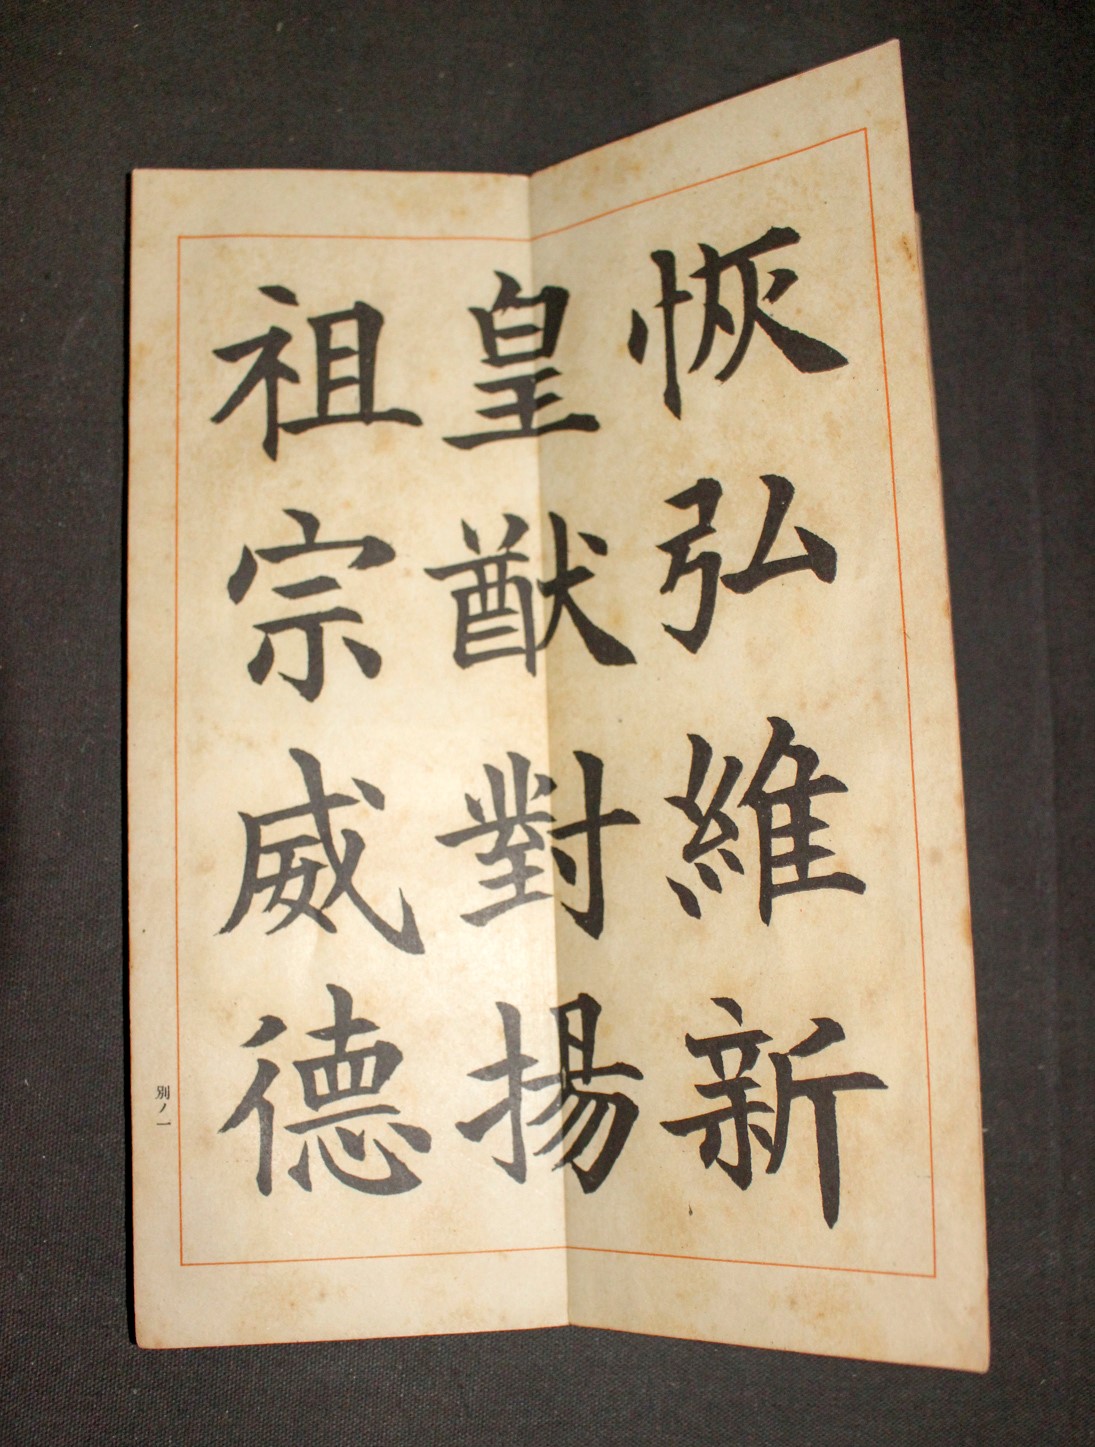 恢弘維新
皇猷對揚
祖宗威德
別ノ一